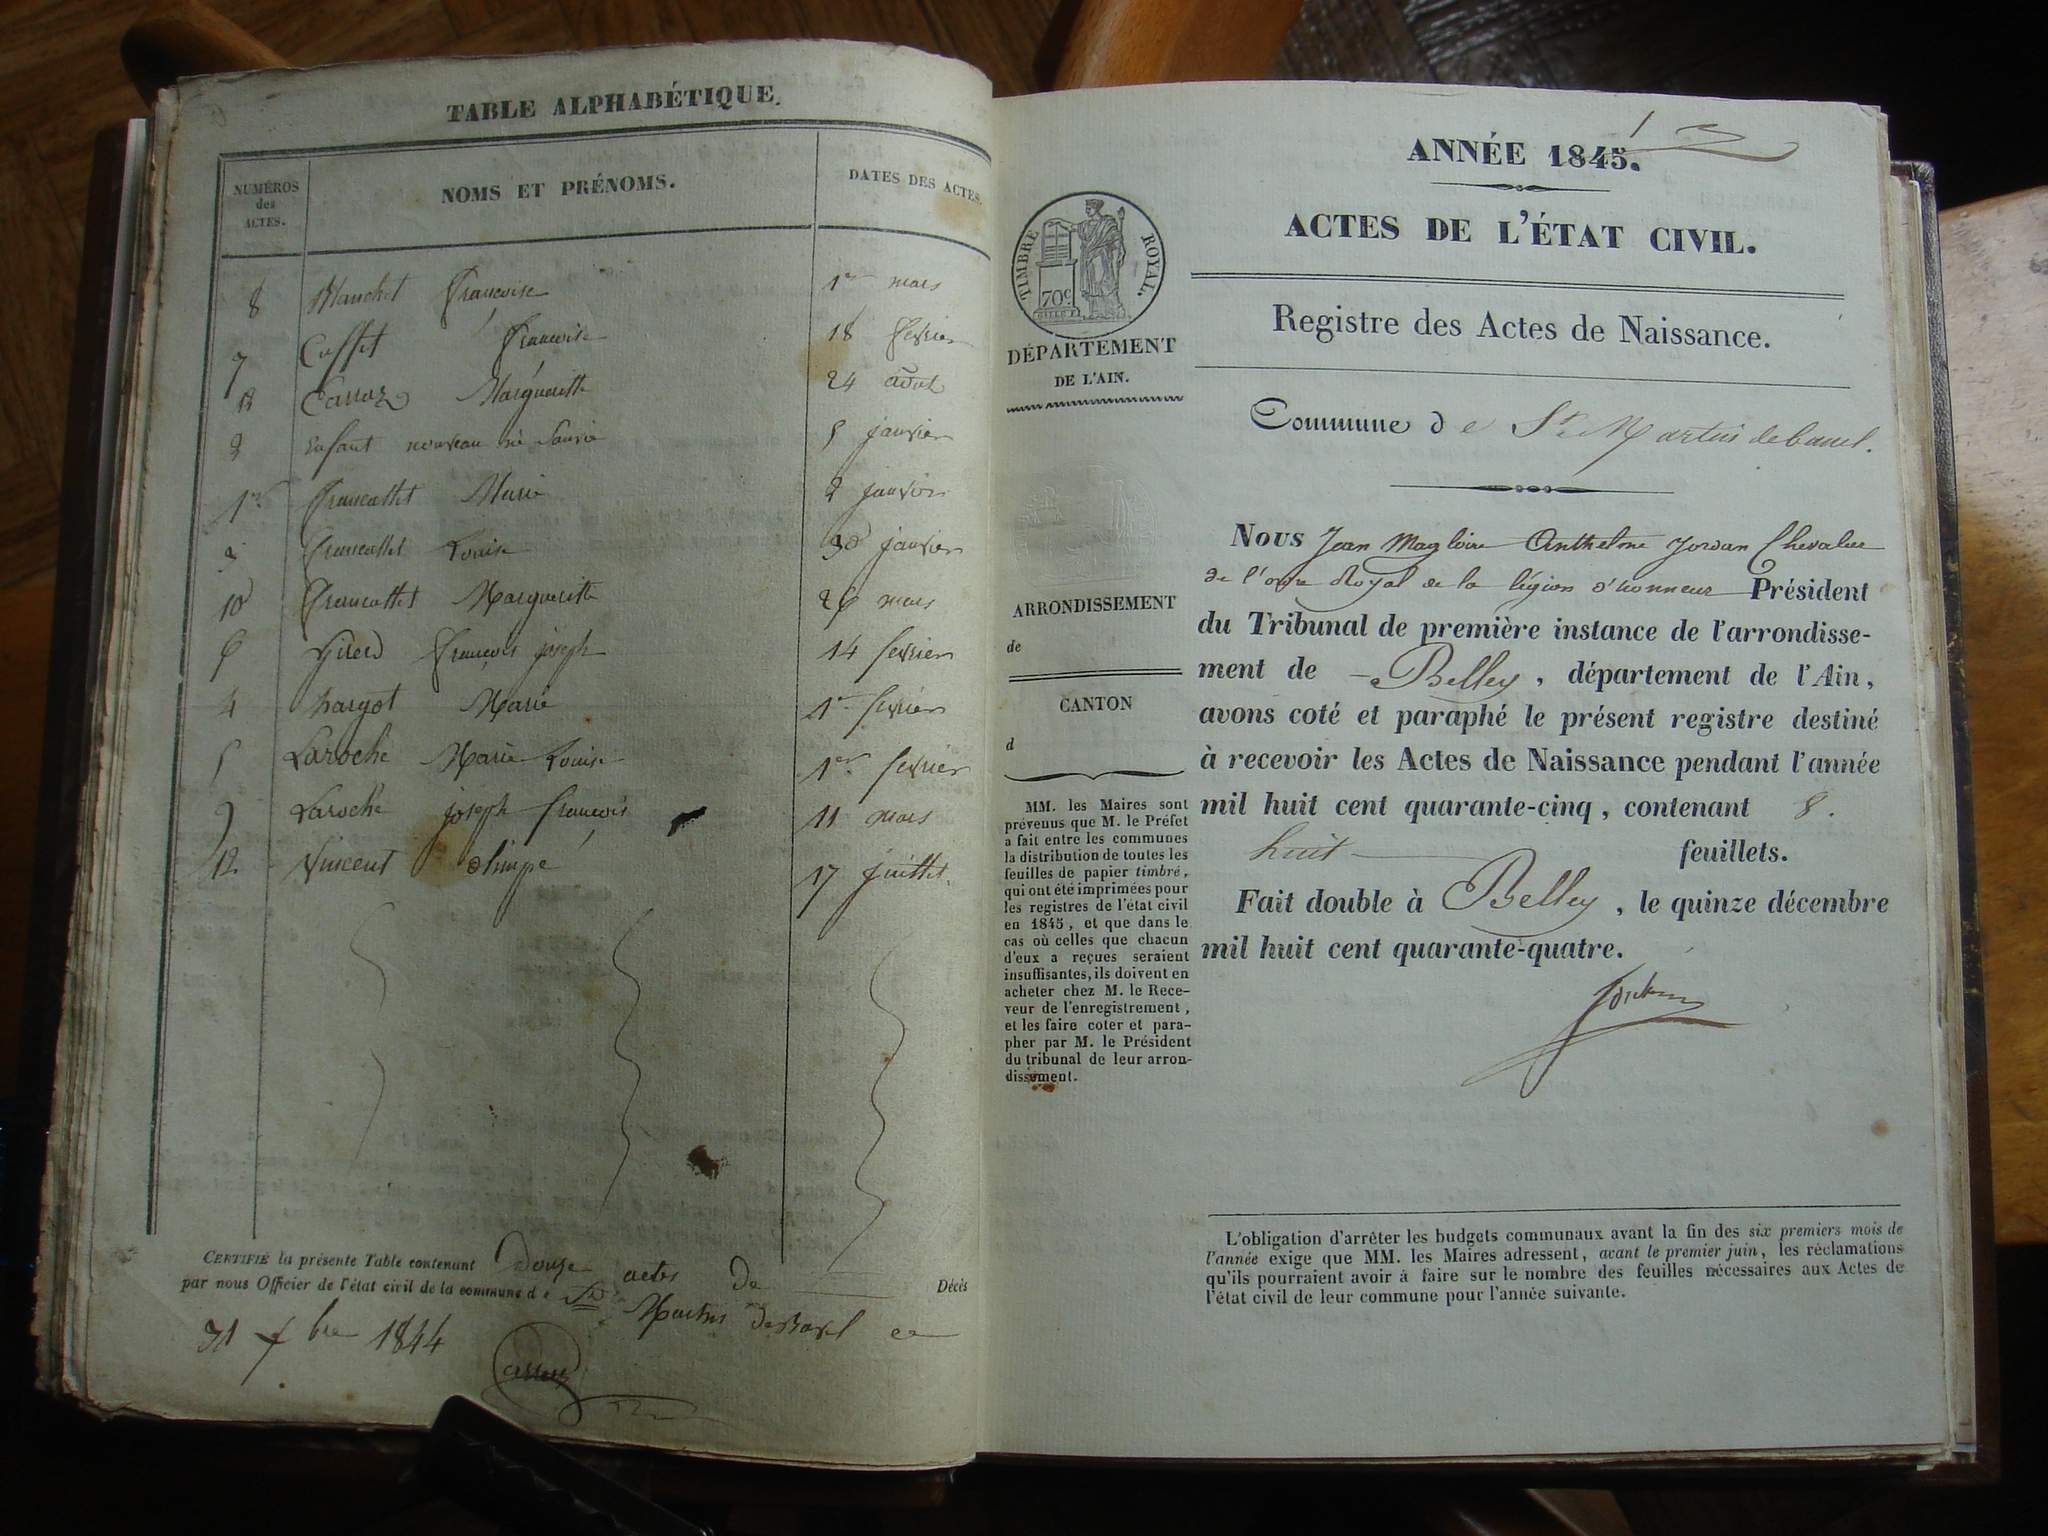 TABLE ALPHABÉTIQUE.
NUMÉROS des ACTES. NOMS ET PRÉNOMS. DATES DES ACTES.
8 Françoise 1er mars
7 Cuffet Françoise 18 fevrier
Carraz Marguerite 24 août
2 Enfant nouveau né janvier
1er Francallet Marie 2 janvier
3 Francallet Louise 30 janvier
10 Francallet Marguerite 26 mars
6 François joseph 14 fevrier
4 Margot Marie 1er fevrier
5 Laroche Marie Louise 1er fevrier
9 Laroche joseph françois 11 mars
12 Vincent olimpe 17 juillet
CERTIFIÉ la présente Table contenant Douze actes De Décès
par nous Officier de l'état civil de la commune de St Martin de Bavel ce
31 Xbre 1844
Carraz
1
ANNÉE 1845.
ACTES DE L'ÉTAT CIVIL.
Registre des Actes de Naissance.
TIMBRE ROYAL.
70c
DÉPARTEMENT
DE L'AIN.
Commune de St Martin de bavel.
Nous Jean Magloire Anthelme Jordan Chevalier
de l'ordre Royal de la légion d'honneur Président
du Tribunal de première instance de l'arrondisse-
ment de Belley, département de l'Ain,
avons coté et paraphé le présent registre destiné
à recevoir les Actes de Naissance pendant l'année
mil huit cent quarante-cinq, contenant 8.
huit feuillets.
Fait double à Belley, le quinze décembre
mil huit cent quarante-quatre.
Jordan
ARRONDISSEMENT
de
CANTON
d
MM. les Maires sont
prévenus que M. le Préfet
a fait entre les communes
la distribution de toutes les
feuilles de papier timbré,
qui ont été imprimées pour
les registres de l'état civil
en 1845, et que dans le
cas où celles que chacun
d'eux a reçues seraient
insuffisantes, ils doivent en
acheter chez M. le Rece-
veur de l'enregistrement,
et les faire coter et para-
pher par M. le Président
du tribunal de leur arron-
dissement.
L'obligation d'arrêter les budgets communaux avant la fin des six premiers mois de
l'année exige que MM. les Maires adressent, avant le premier juin, les réclamations
qu'ils pourraient avoir à faire sur le nombre des feuilles nécessaires aux Actes de
l'état civil de leur commune pour l'année suivante.